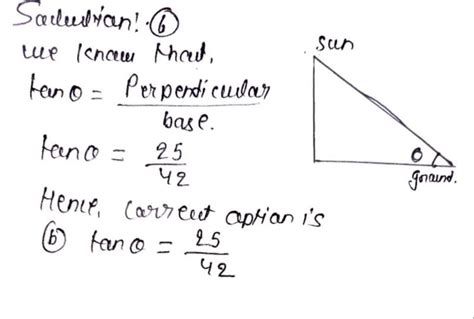 Solution! ⓑ
we know that,
tanθ = Perpendicular
base.
tanθ = 25
42
Hence, correct option is
ⓑ tanθ = 25
42
Sun
θ
ground.